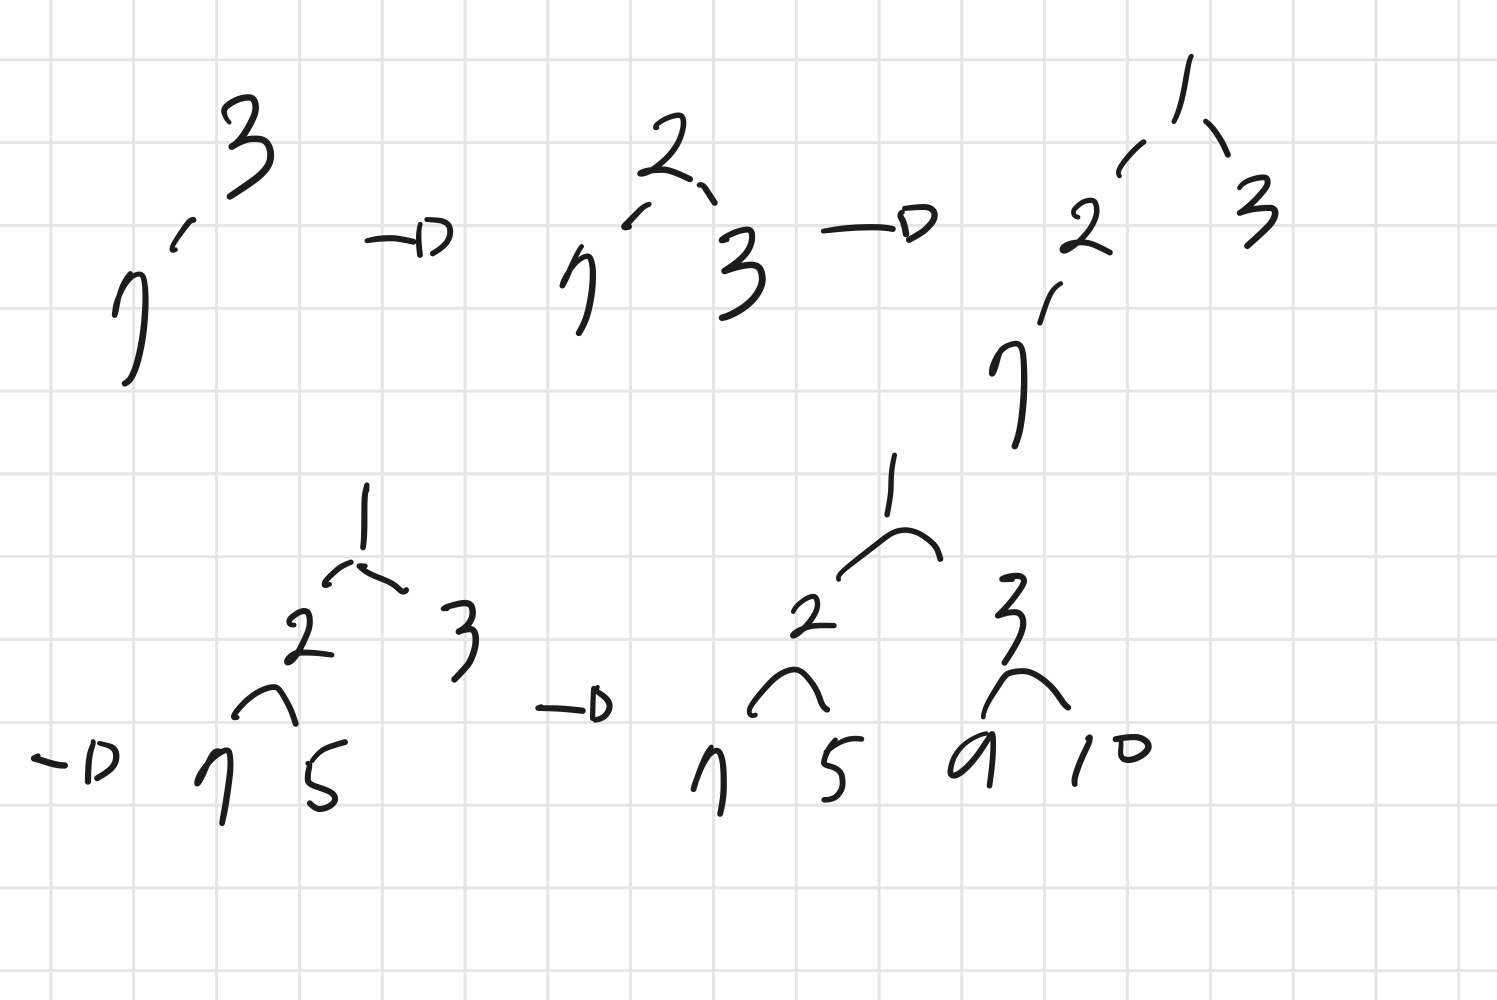 3
7
→
2
7 3
→
1
2 3
7
→
1
2 3
7 5
→
1
2 3
7 5 9 10